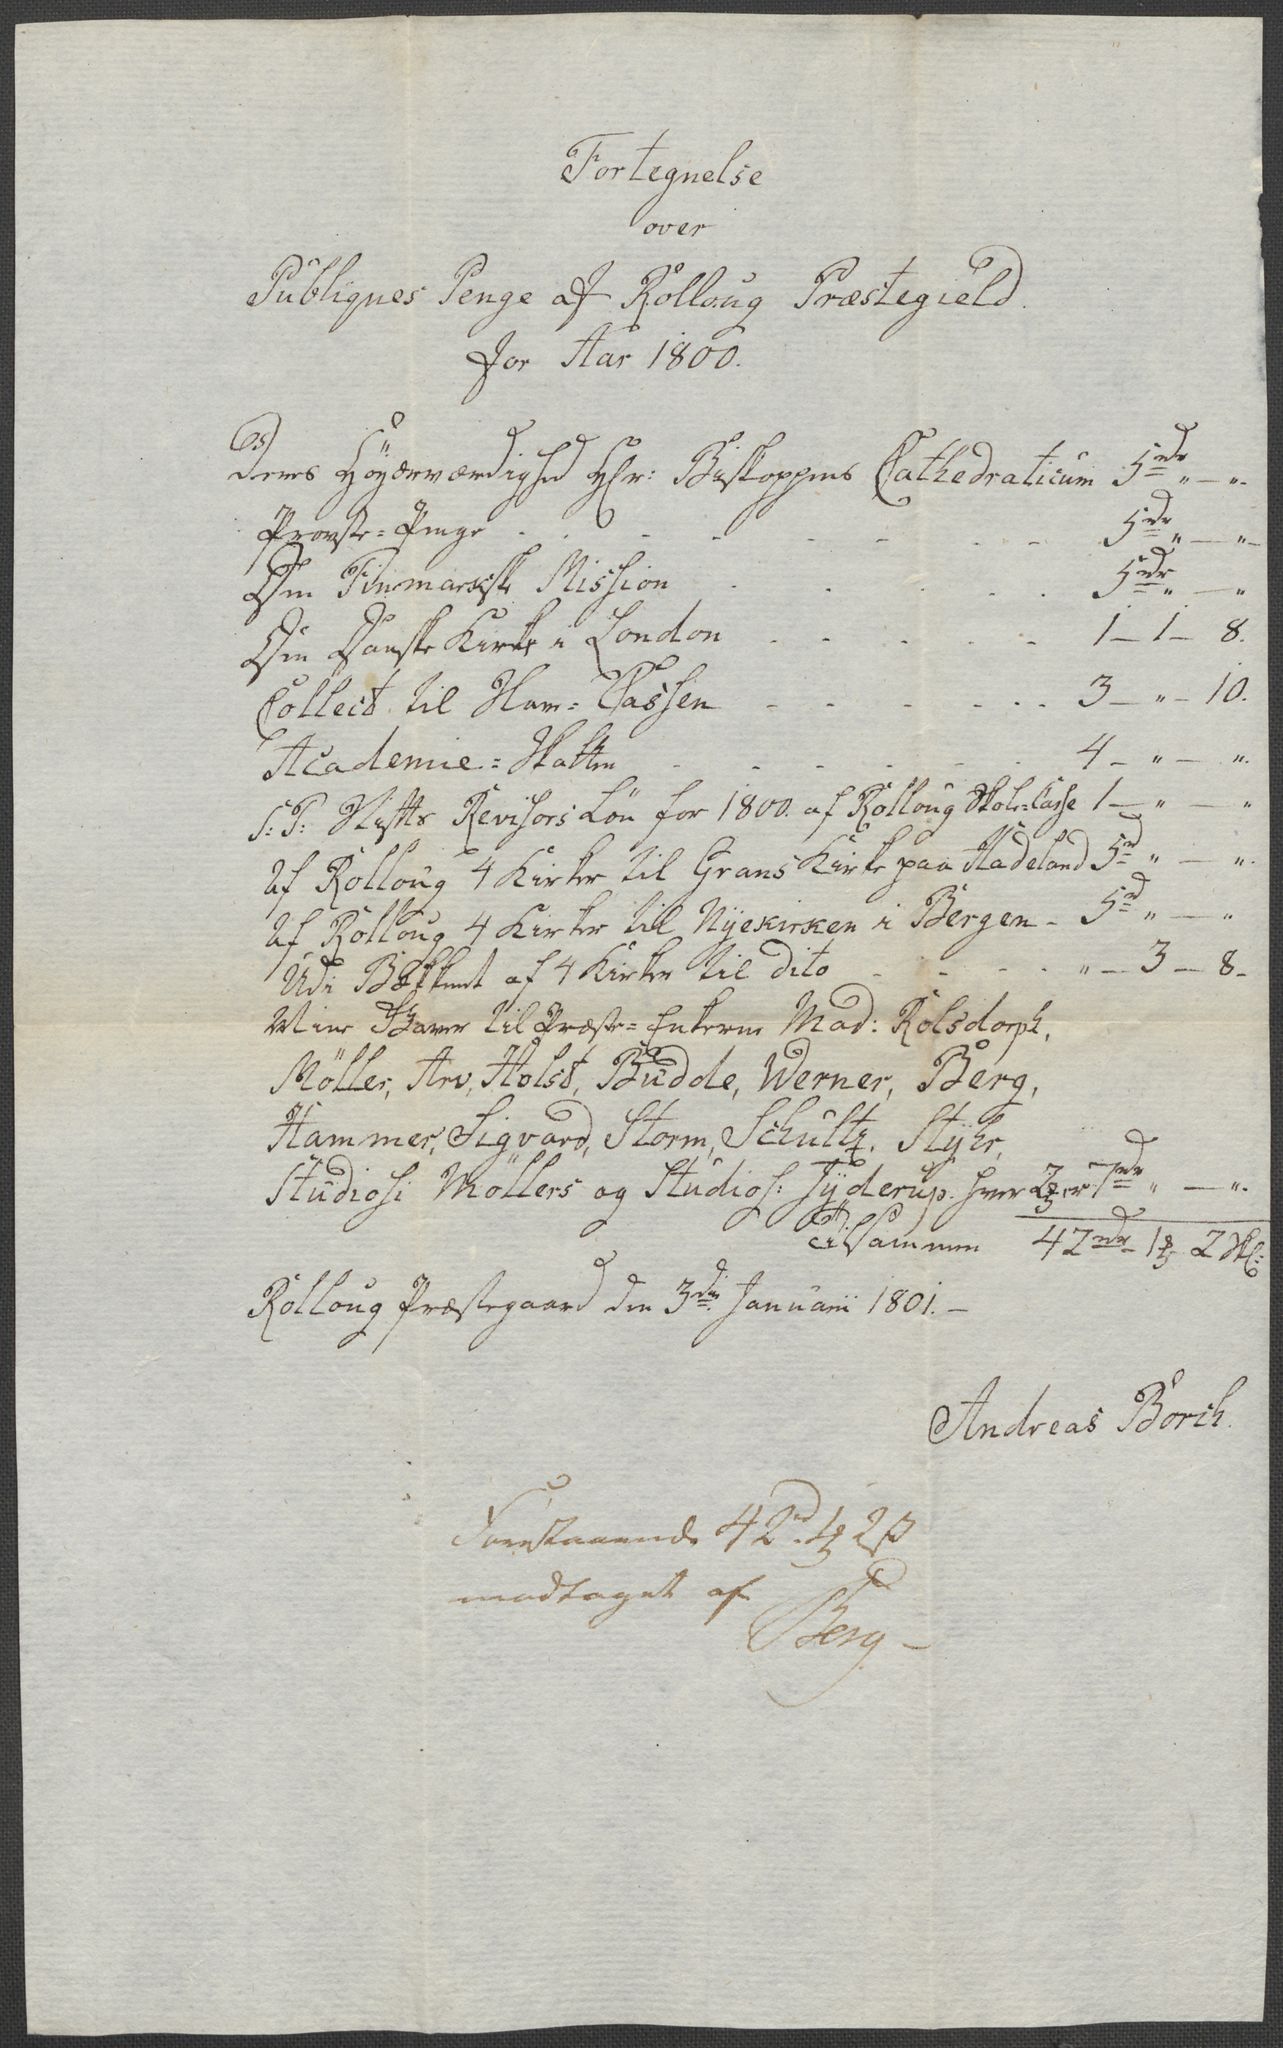 Fortegnelse
over
Publiqves Penge af Rolloug Præstegield
for Aar 1800.
Deres Höyærværdighed Hr: Biskoppens Cathedraticum 5 rdr " — "
Provste-Penge 5 rdr " — "
Den Finmarkske Mission 5 rdr " — "
Den Danske Kirke i London 1 — 1 — 8.
Collect til Qvæst-Cassen 3 — " — 10.
Academie-Skatten 4 — " — "
S: T: Stifts Revisors Lön for 1800. af Rolloug Skole-Casse 1 — " — "
Af Rolloug 4 Kirker til Grans Kirke paa Hadeland 5 rd " — "
Af Rolloug 4 Kirker til Nyekirken i Bergen - 5 rd " — "
Udi Bækkent af 4 Kirker til dito " — 3 — 8 -
Mine Gaver til Præste-Enkerne Mad: Rolsdorph,
Möller, Arv, Holst, Budde, Werner, Berg,
Hammer, Sigvard, Storm, Schultz, Styhr,
Studiosi Möllers og Studios: Tyderup. hver 2 ƶ er 7 rdr " — "
tilsammen 42 rdr 1 ƶ 2 sk:
Rolloug Præstegaard den 3die Januarii 1801. —
Andreas Borch.
Forestaaende 42 rd. 1 ƶ 2 ß
modtaget af
Berg —